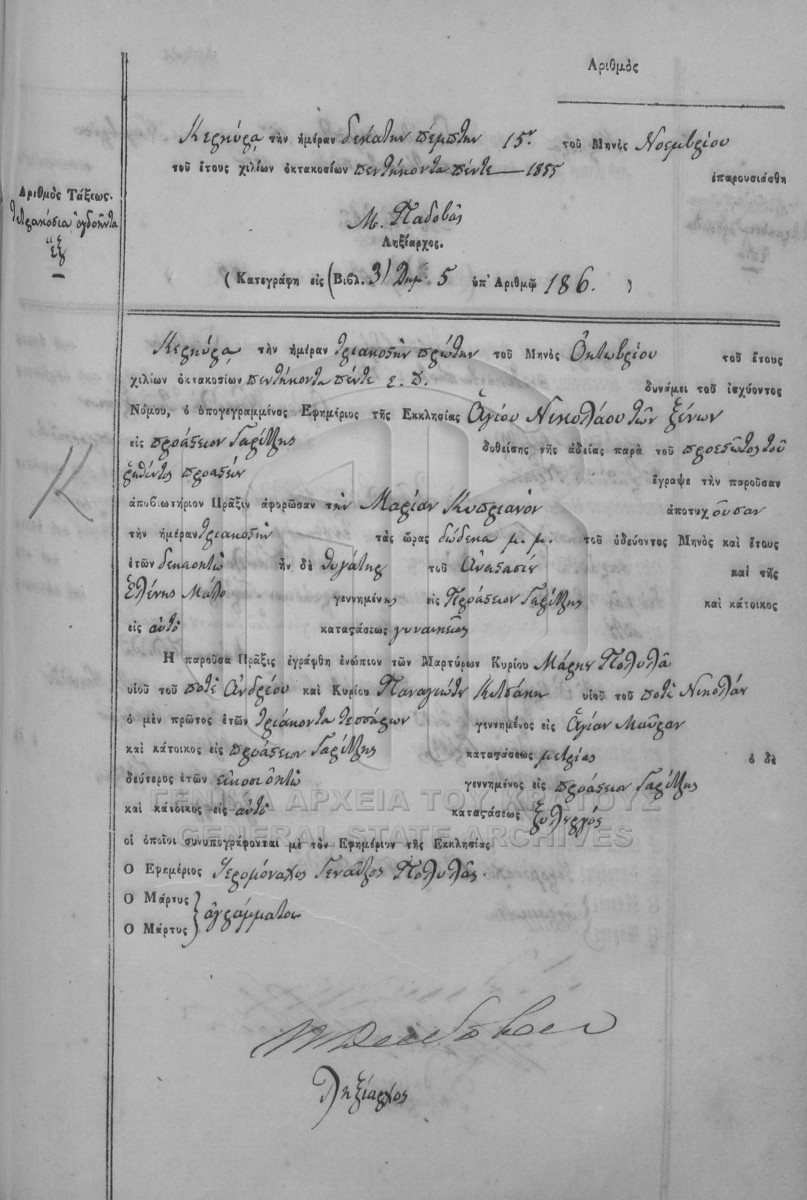 Αριθμὸς
Κερκύρα τὴν ἡμέραν δεκάτην πέμπτην 15ην τοῦ Μηνὸς Νοεμβρίου
τοῦ ἔτους χιλίων ὀκτακοσίων πεντήκοντα πέντε — 1855
ἐπαρουσιάσθη
Αριθμὸς Τάξεως.
τετρακόσια ὀγδοῆντα
ἕξ
Μ. Παδοβᾶς
Ληξίαρχος.
( Κατεγράφη εἰς (Βιβλ. 3) Δημ. 5 ὑπ' Αριθμῷ 186. )
Κερκύρα τὴν ἡμέραν τριακοστὴν πρώτην τοῦ Μηνὸς Ὀκτωβρίου τοῦ ἔτους
χιλίων ὀκτακοσίων πεντήκοντα πέντε Ε. Π. δυνάμει τοῦ ἰσχύοντος
Νόμου, ὁ ὑπογεγραμμένος Ἐφημέριος τῆς Ἐκκλησίας Ἁγίου Νικολάου τῶν ξένων
εἰς προάστειον Γαρίτζης δοθείσης τῆς ἀδείας παρὰ τοῦ προεστῶτος τοῦ
ῥηθέντος προαστ. ἔγραψε τὴν παροῦσαν
ἀποβιωτήριον Πρᾶξιν ἀφορῶσαν τὴν Μαρίαν Κυπριανὸν ἀποτυχοῦσαν
τὴν ἡμέραν τριακοστὴν τὰς ὥρας δώδεκα μ. μ. τοῦ ὁδεύοντος Μηνὸς καὶ ἔτους
ἐτῶν δεκαοκτὼ ἦν δὲ θυγάτηρ τοῦ Ἀναστασίου καὶ τῆς
Ἑλένης Μάτο γεννημένης εἰς Προάστειον Γαρίτζης καὶ κάτοικος
εἰς αὐτό καταστάσεως γυναικείας
Η παροῦσα Πρᾶξις ἐγράφθη ἐνώπιον τῶν Μαρτύρων Κυρίου Μάρκου Πολυλᾶ
υἱοῦ τοῦ ποτὲ Ἀνδρέου καὶ Κυρίου Παναγιώτη Κιτσάκη υἱοῦ τοῦ ποτὲ Νικολάου
ὁ μὲν πρῶτος ἐτῶν τριάκοντα τεσσάρων γεννημένος εἰς Ἁγίαν Μαῦραν
καὶ κάτοικος εἰς προάστειον Γαρίτζης καταστάσεως μετρίας ὁ δὲ
δεύτερος ἐτῶν εἰκοσιοκτὼ γεννημένος εἰς προάστειον Γαρίτζης
καὶ κάτοικος εἰς αὐτό καταστάσεως ξυλουργός
οἱ ὁποῖοι συνυπογράφονται μὲ τὸν Ἐφημέριον τῆς Ἐκκλησίας
Ο Ἐφημέριος Ἱερομόναχος Γενάτζος Πολυλᾶς.
Ο Μάρτυς
Ο Μάρτυς } ἀγράμματοι
Ληξίαρχος
Κ
ΓΕΝΙΚΑ ΑΡΧΕΙΑ ΤΟΥ ΚΡΑΤΟΥΣ
GENERAL STATE ARCHIVES